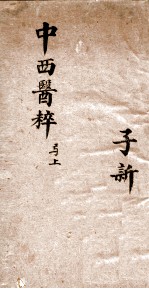 子新
中西醫粹
上